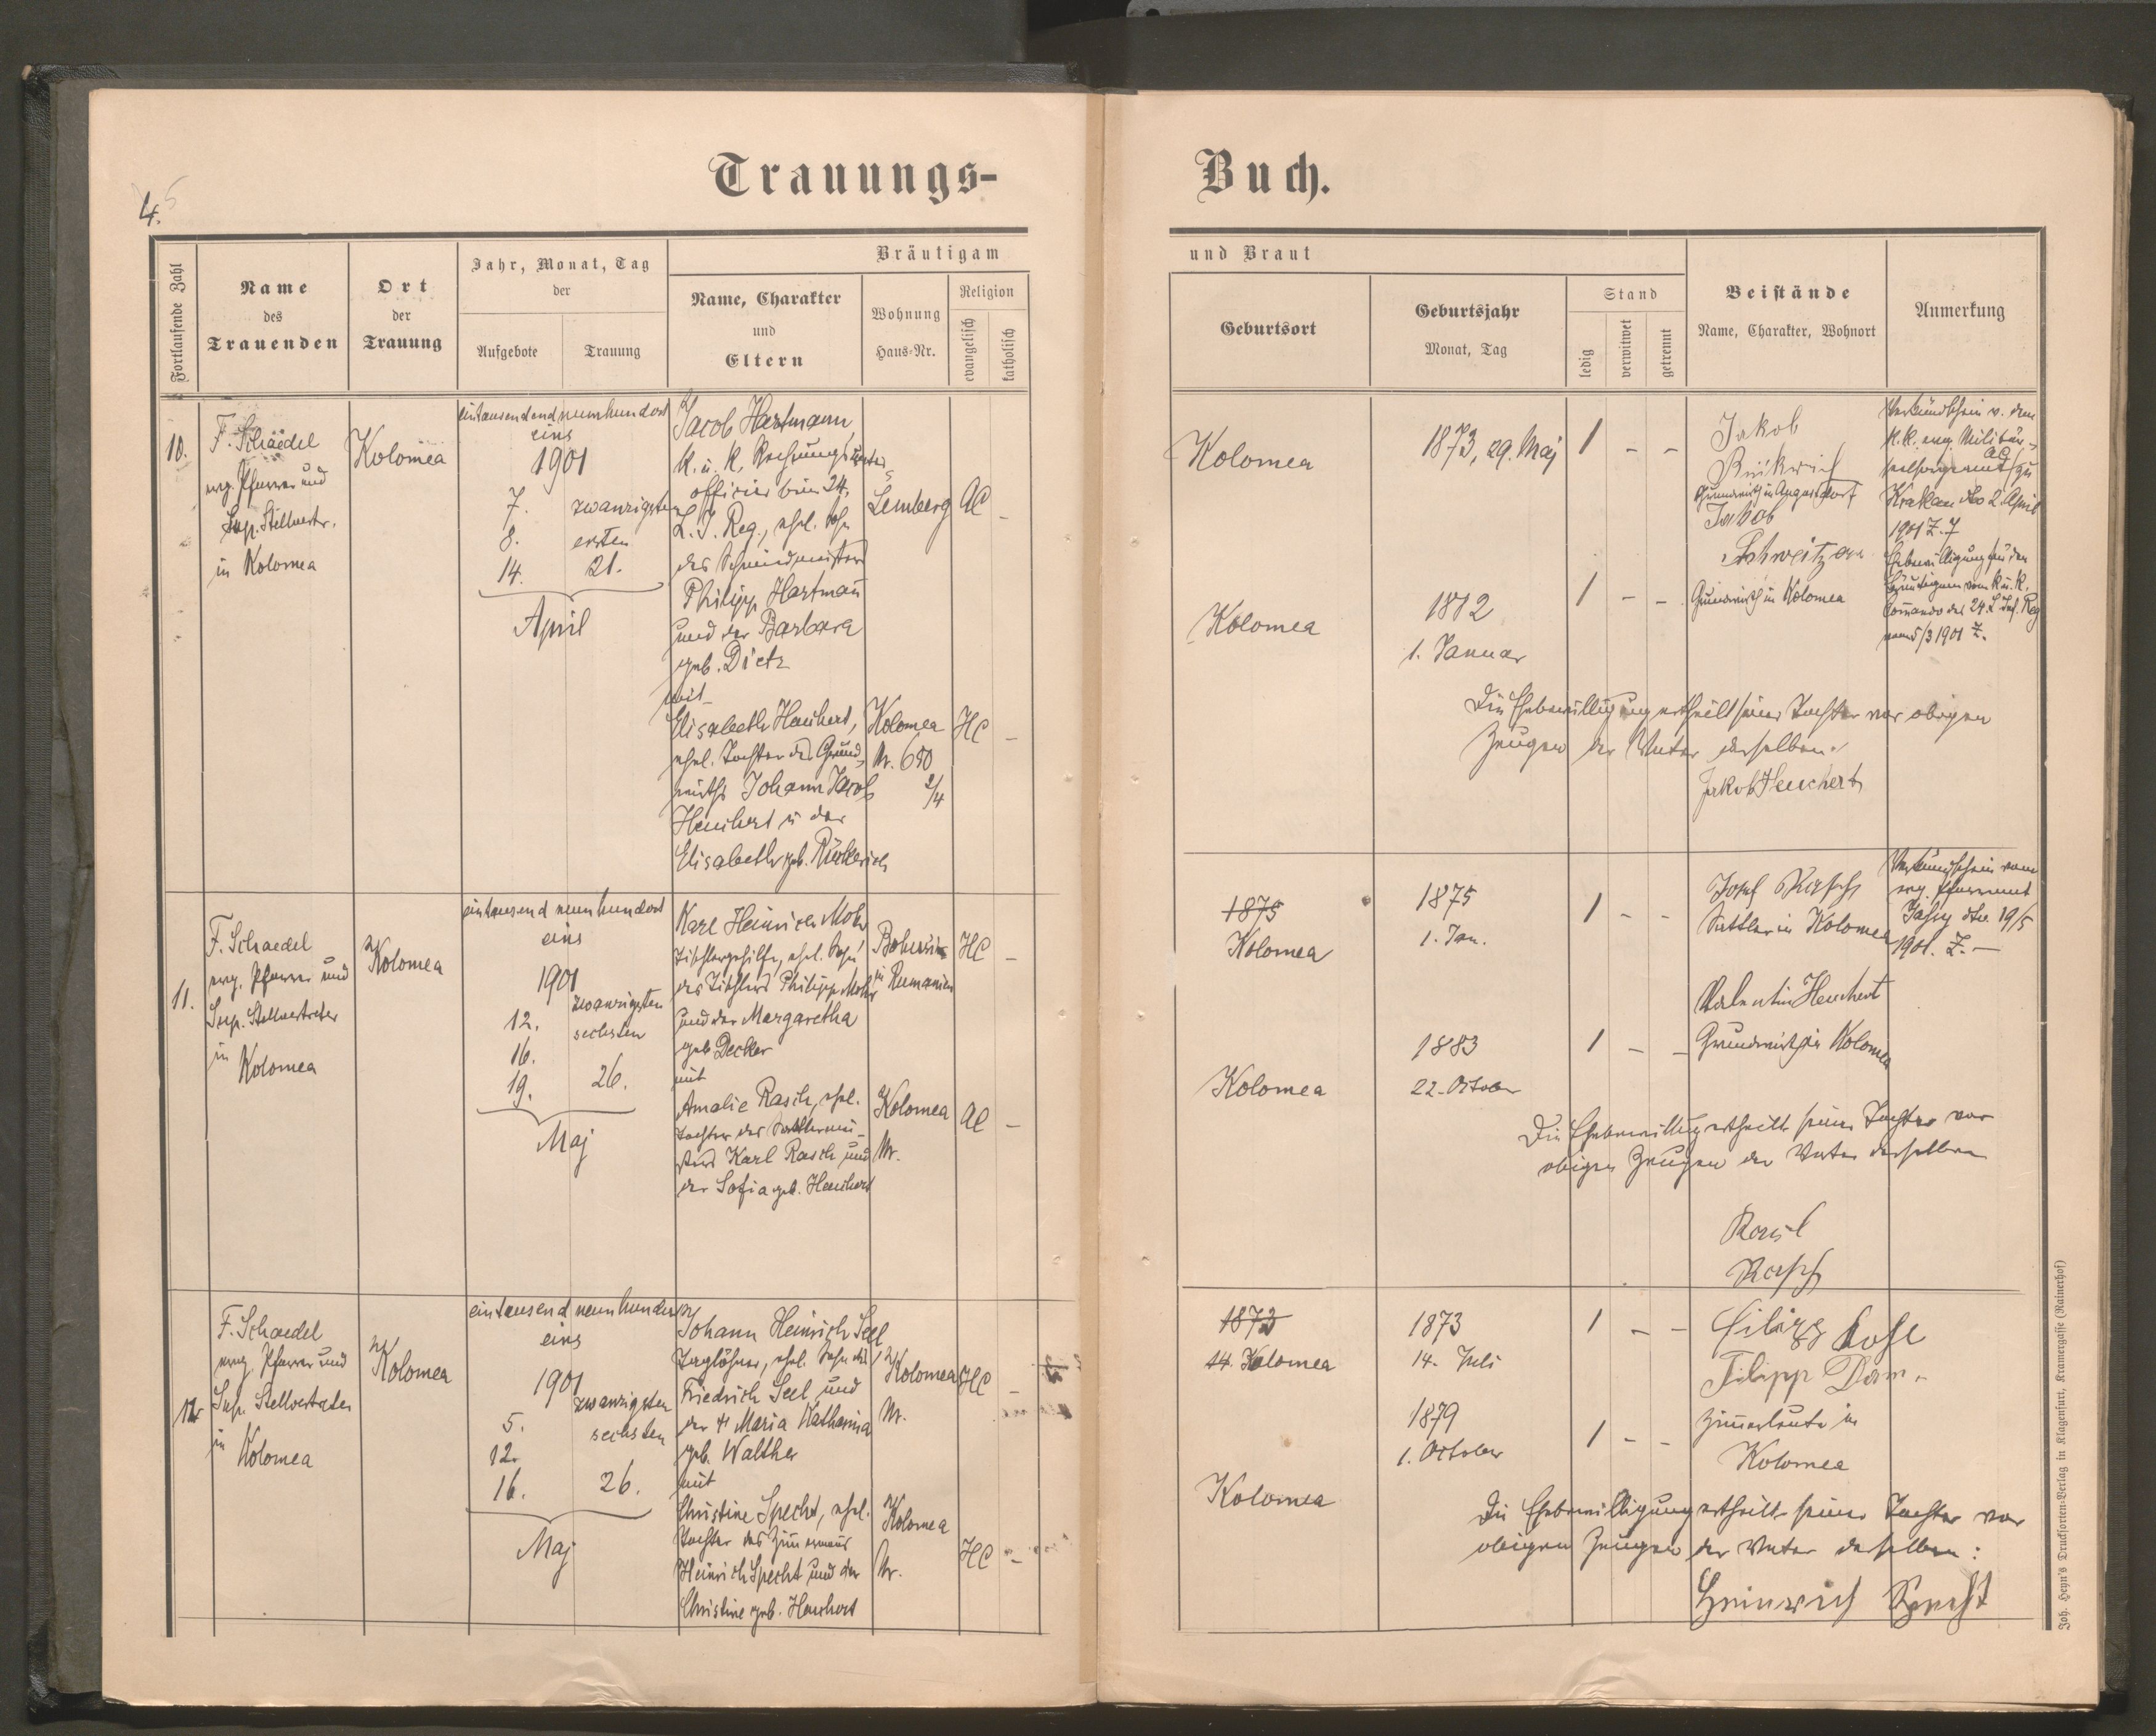 4.
Trauungs-
Fortlaufende Zahl
Name
des
Trauenden
Ort
der
Trauung
Jahr, Monat, Tag
der
Aufgebote
Trauung
Bräutigam
Name, Charakter
und
Eltern
Wohnung
Haus-Nr.
Religion
evangelisch
katholisch
10.
F. Schaedel
evg. Pfarrer und
Sup. Stellvertr.
in Kolomea
Kolomea
eintausendneunhundert
eins
1901
7.
8.
14.
zwanzigsten
ersten
21.
April
Jacob Hartmann
k. u. k. Rechnungsunter-
officier beim 24.
L. I. Reg., ehel. Sohn
des Schmiedmeisters
Philipp Hartmañ
und der Barbara
geb. Dietz
mit
Elisabeth Heuchert,
ehel. Tochter des Grund-
wirths Johann Jacob
Heuchert u der
Elisabeth geb. Rückerich
Lemberg
AC
–
Kolomea
Nr. 680
2/4
HC
–
11.
F. Schaedel
evg. Pfarrer und
Sup. Stellvertreter
in
Kolomea
Kolomea
eintausend neunhundert
eins
1901
12.
16.
19.
zwanzigsten
sechsten
26.
Maj
Karl Heinrich Mohr
Tischlergehilfe, ehel. Sohn
des Tischlers Philipp Mohr
und der Margaretha
geb Decker
mit
Amalie Rasch, ehel.
Tochter des Sattlermei-
sters Karl Rasch und
der Sofia geb. Heuchert
in Rumänien
HC
–
Kolomea
Nr.
AC
–
12.
F. Schaedel
evg. Pfarrer und
Sup. Stellvertreter
in
Kolomea
Kolomea
eintausend neunhundert
eins
1901
5.
12.
16.
zwanzigsten
sechsten
26.
Maj
Johann Heinrich Seel
Taglöhner, ehel. Sohn des
Friedrich Seel und
der † Maria Katharina
geb. Walther
mit
Christine Specht, ehel.
Tochter des Zimmermañs
Heinrich Specht und der
Christine geb. Heuchert
Kolomea
Nr.
HC
–
Kolomea
Nr.
HC
–
Buch.
und Braut
Geburtsort
Geburtsjahr
Monat, Tag
Stand
ledig
verwitwet
getrennt
Beistände
Name, Charakter, Wohnort
Anmerkung
Kolomea
1873, 29. Maj
1 – –
Jakob
Rückrich
Grundwirth in Augustdorf
Jakob
Schweitzer
Grundwirth in Kolomea
Verkündschein v. dem
k. k. evg. Militär-
seelsorgeamt AC zu
Krakau dto 2. April
1901 Z. 7
Ehebewilligung für den
Bräutigam vom k. u. k.
Comando des 24. L. Inf. Reg
vom 5/3 1901 Z.
Kolomea
1812
1. Januar
1 – –
Die Ehebewilligung ertheilt seiner Tochter vor obigen
Zeugen der Vater derselben.
Jakob Heuchert
1875
Kolomea
1875
1. Jan.
1 – –
Josef Rasch
Sattler in Kolomea
Valentin Heuchert
Grundwirth in Kolomea
Verkündschein vom
evg. Pfarramt
Jassy dto 19/5
1901. Z. –
Kolomea
1883
22. October
1 – –
Die Ehebewilligung ertheilt seiner Tochter vor
obigen Zeugen der Vater derselben
Karl
Rasch
1873
14. Kolomea
1873
14. Juli
1 – –
Filipp
Filipp Dom.
Zimmerleute in
Kolomea
Kolomea
1879
1. October
1 – –
Die Ehebewilligung ertheilt seiner Tochter vor
obigen Zeugen der Vater derselben:
Heinrich Specht
Joh. Heyn's Drucksorten-Verlag in Klagenfurt, Kramergasse (Rainerhof)